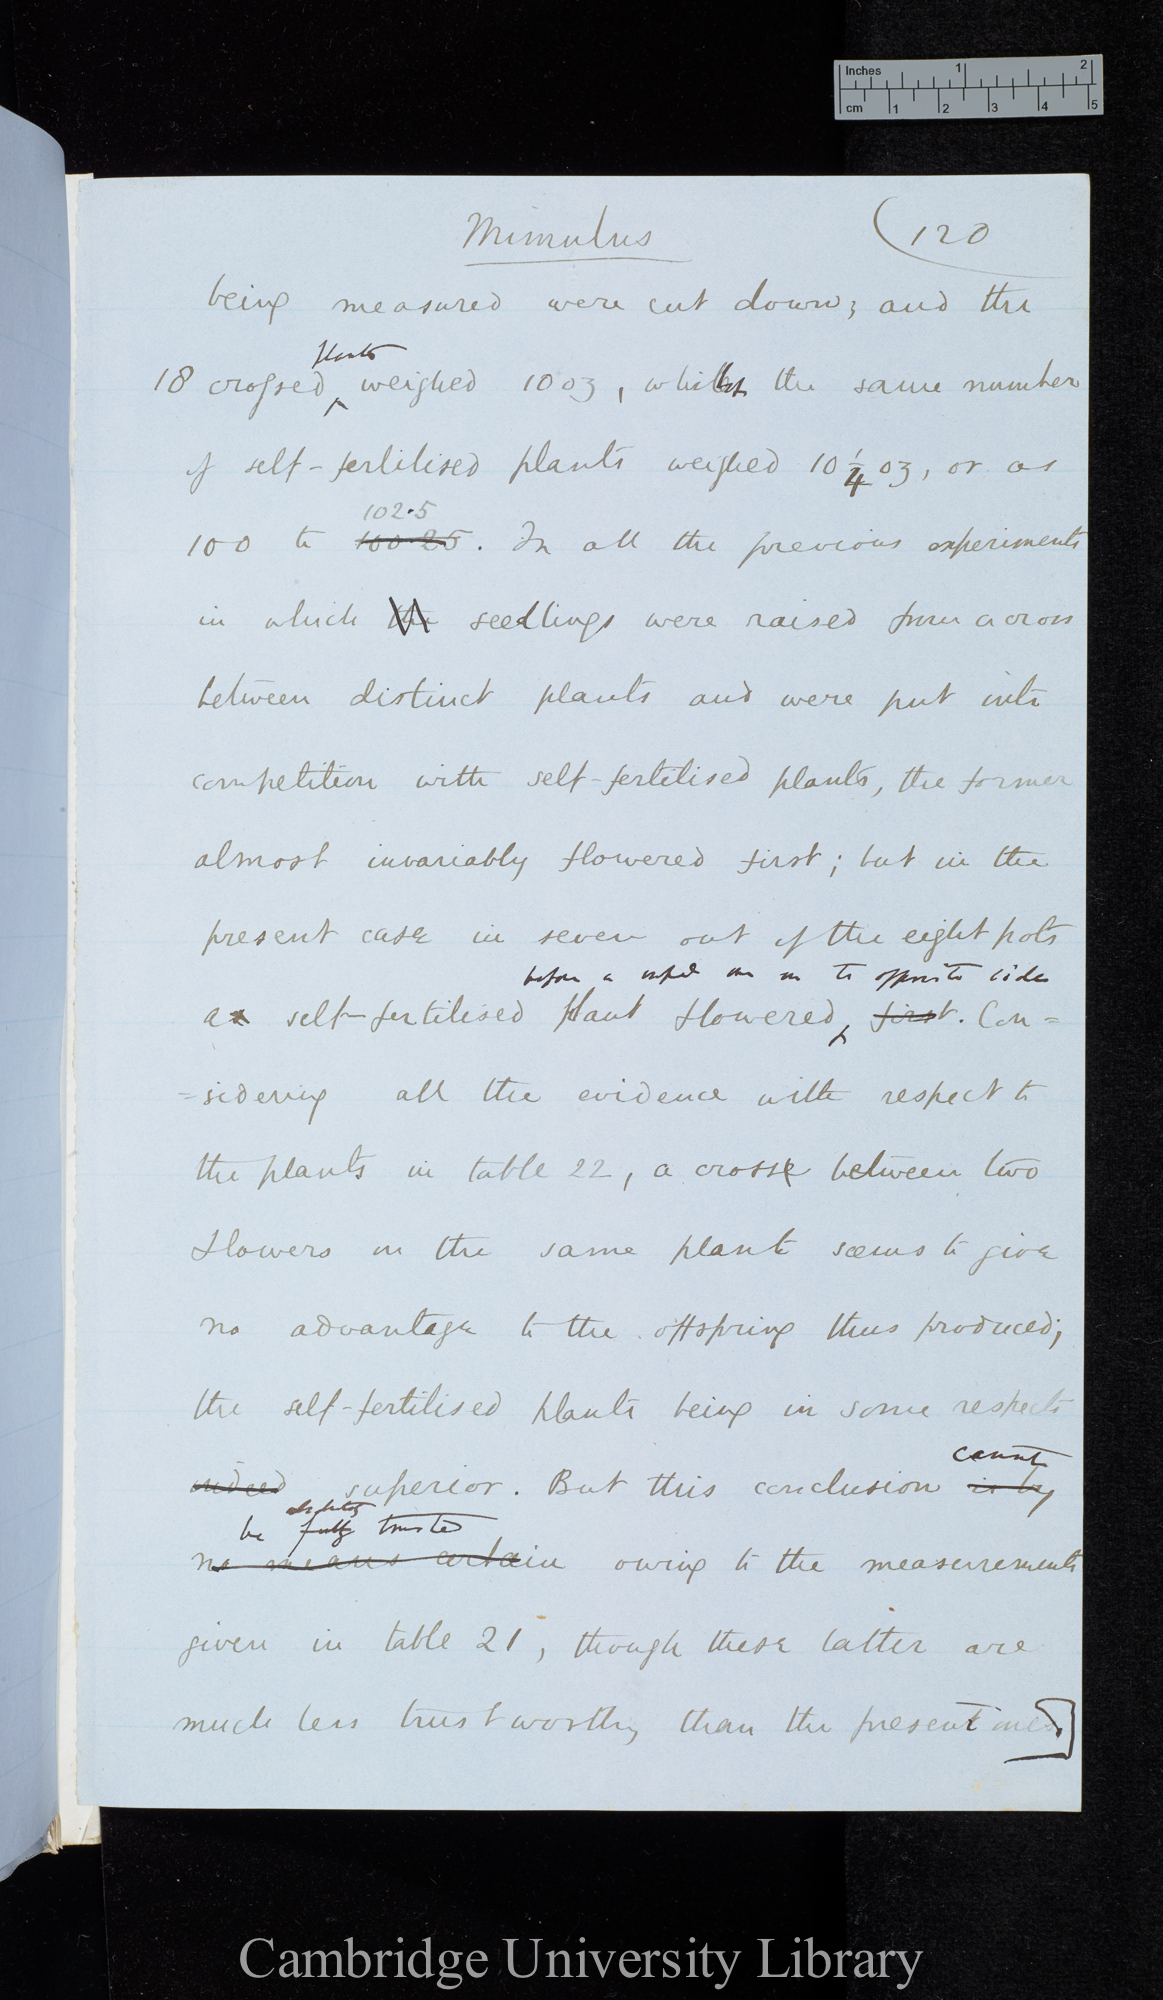 Inches 1 2
cm 1 2 3 4 5
Mimulus (120
being measured were cut down; and the
plants
18 crossed weighed 10 oz, whilst the same number
of self-fertilised plants weighed 10 1/4 oz, or as
102.5
100 to 100.25. In all the previous experiments
in which the seedlings were raised from a cross
between distinct plants and were put into
competition with self-fertilised plants, the former
almost invariably flowered first; but in the
present case in seven out of the eight pots
before a crossed one on the opposite side
a self-fertilised plant flowered first. Con=
=sidering all the evidence with respect to
the plants in table 22, a cross between two
flowers on the same plant seems to give
no advantage to the offspring thus produced;
the self-fertilised plants being in some respects
cannot
indeed superior. But this conclusion is by
be fully trusted
no means certain owing to the measurements
given in table 21, though these latter are
much less trustworthy than the present ones.]
Cambridge University Library